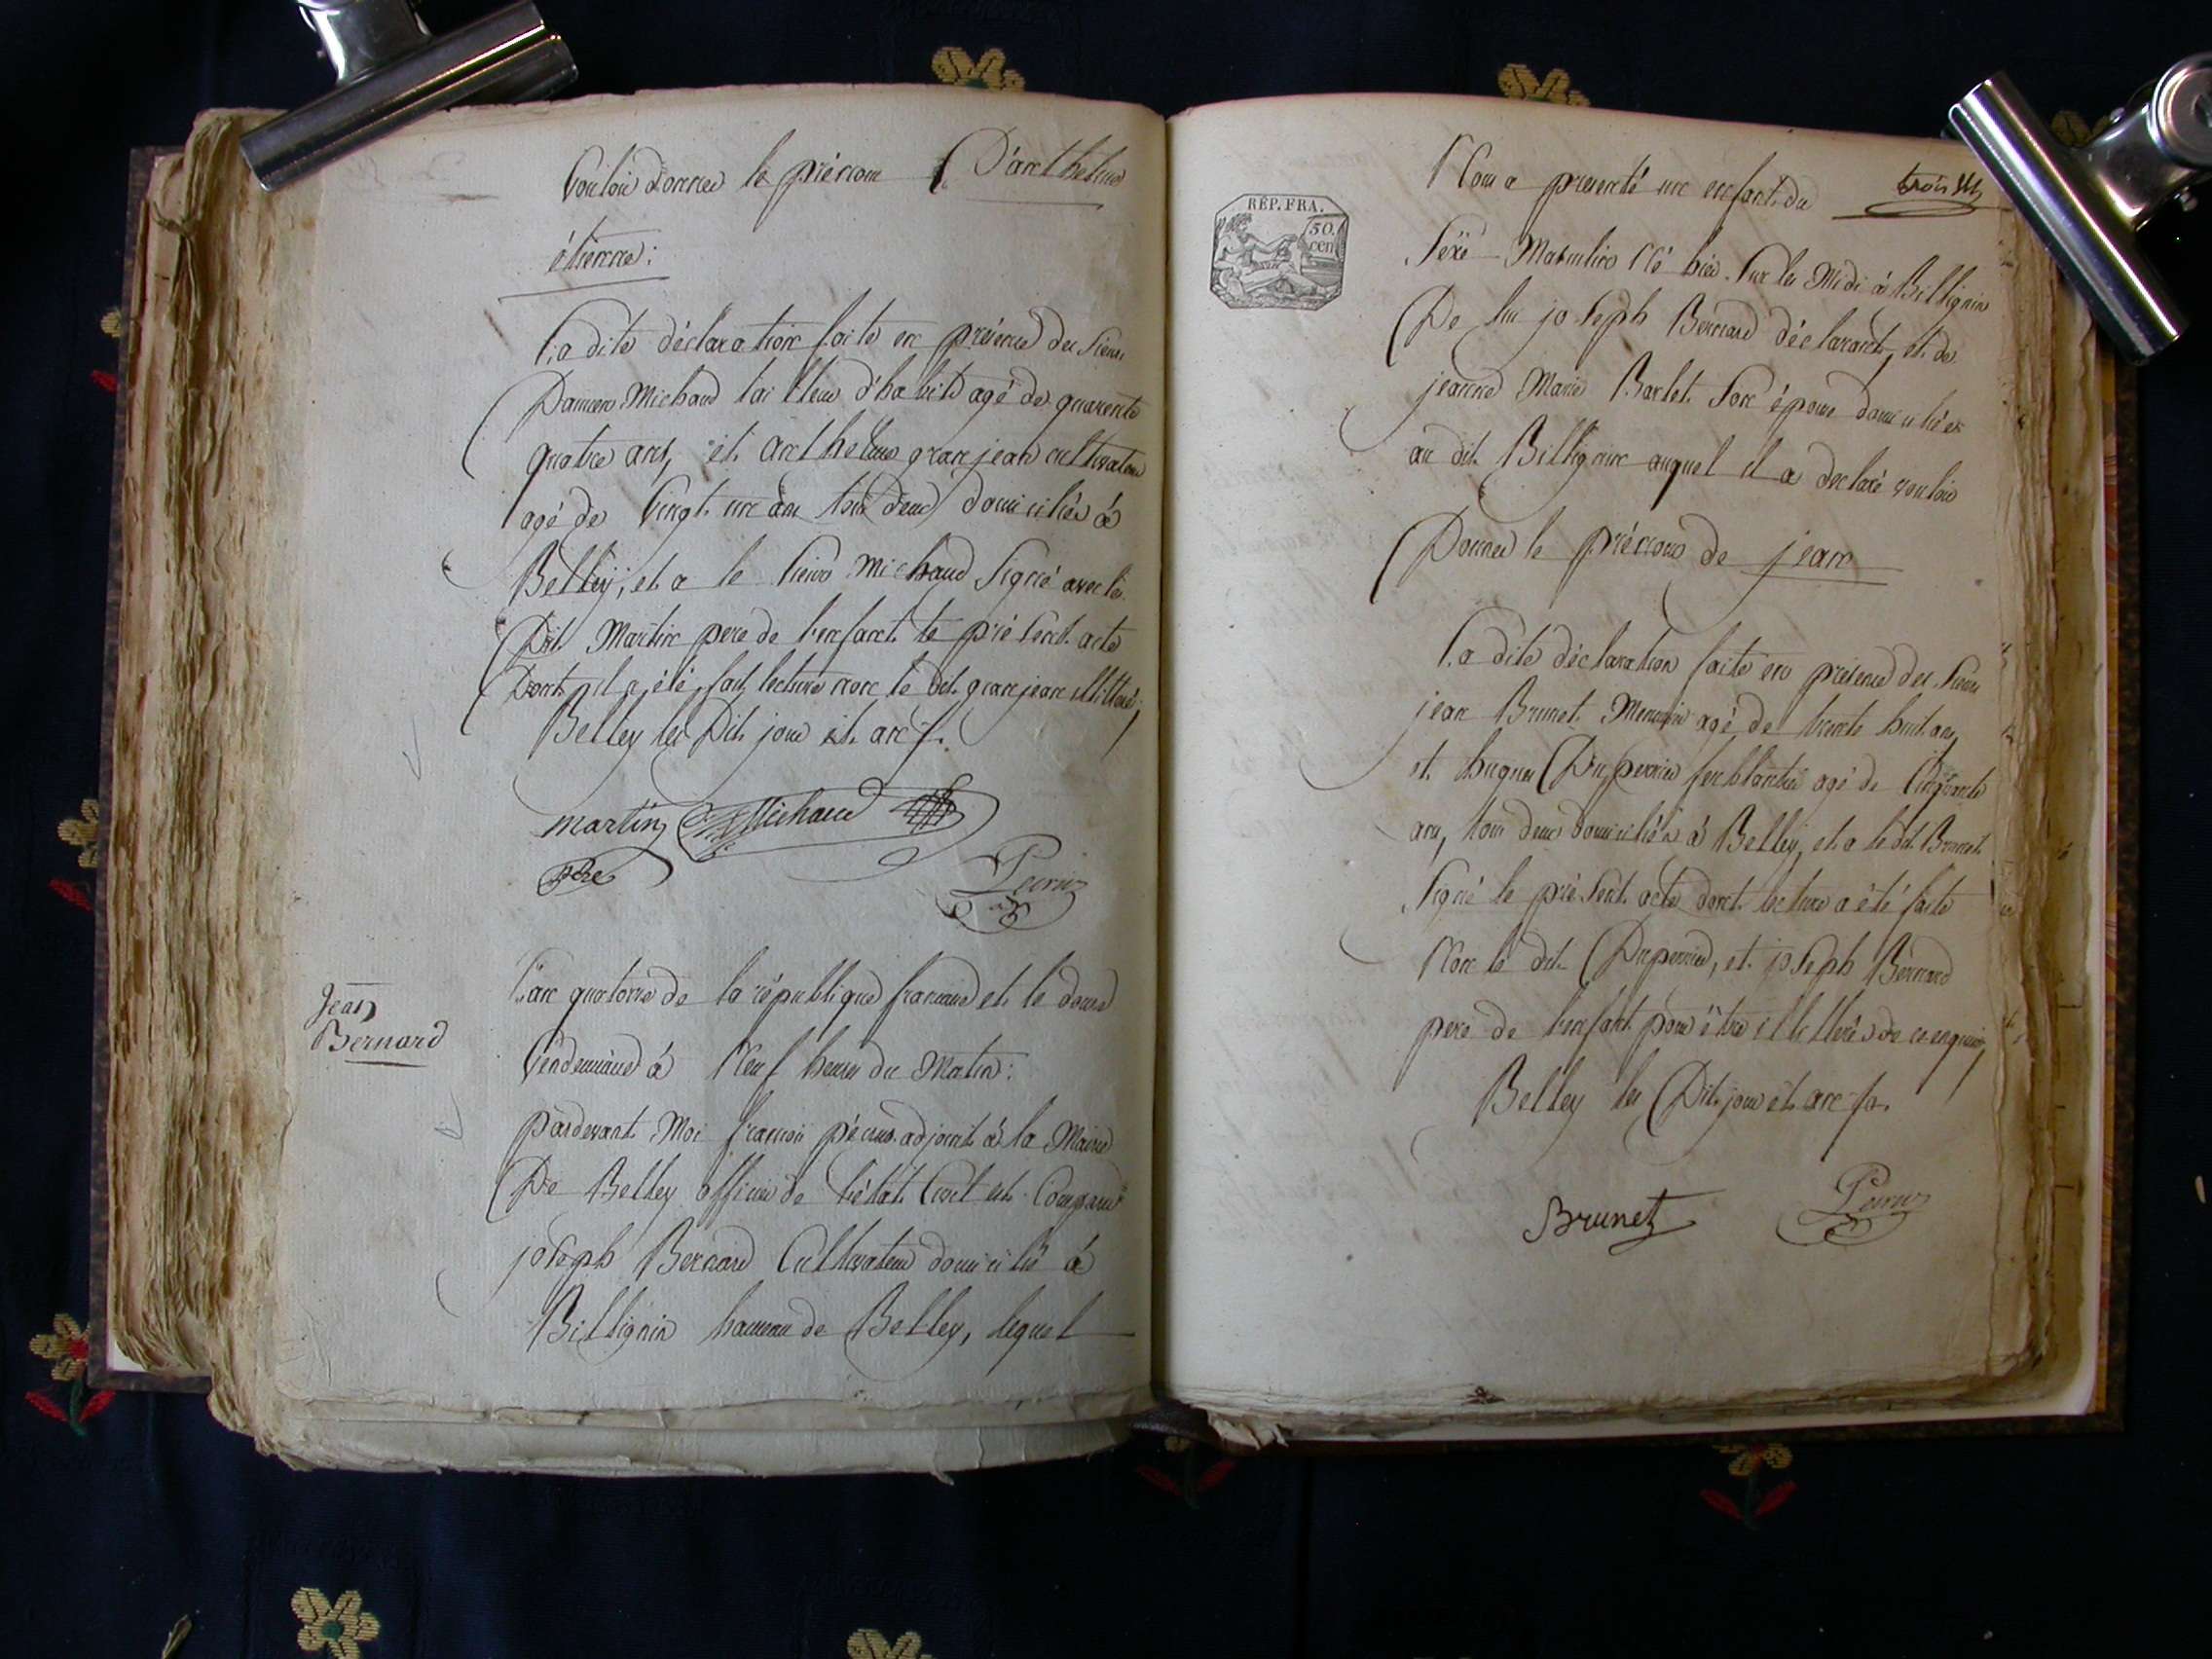 Vouloir donner le prénom D'anthelme
étienne:
La dite déclaration faite en présence des sieurs
Damien Michaud tailleur d'habits agé de quarente
quatre ans, et anthelme granjean cultivateur
agé de vingt un ans tous deux domiciliés á
Belley, et a le sieur Michaud signé avec le
Dit Martin pere de l'enfant le présent acte
Dont il a été fait lecture non le dit granjean illitteré,
Belley les Dit jour et an f.
martin Michaud
pere
Jean
Bernard
L'an quatorze de la république francaise et le douze
Vendemiaire á Neuf heures du Matin:
pardevant Moi francois adjoint á la Mairie
De Belley officier de l'état Civil est Comparu
joseph Bernard Cultivateur domicilié á
Billignin hameau de Belley, lequel
trois
Nous a presenté un enfant du
RÉP. FRA.
50.
cen
Sexe Masculin Né hier sur les Midi á Billignin
De lui joseph Bernard déclarant, et de
jeanne Marie Barlet son épouse domiciliés
au dit Billignin auquel il a declaré vouloir
Donner le prénom de jean
La dite déclaration faite en présence des sieurs
jean Brunet Menuisier agé de trente huit ans
et hugues Duperrier ferblantier agé de Cinquante
ans, tous deux domiciliés á Belley, et a le dit Brunet
signé le présent acte dont lecture a été faite
Non le dit Duperrier, et joseph Bernard
pere de l'enfant pour être illetterés de ce enquis,
Belley les Dit jour et an f.
Brunet